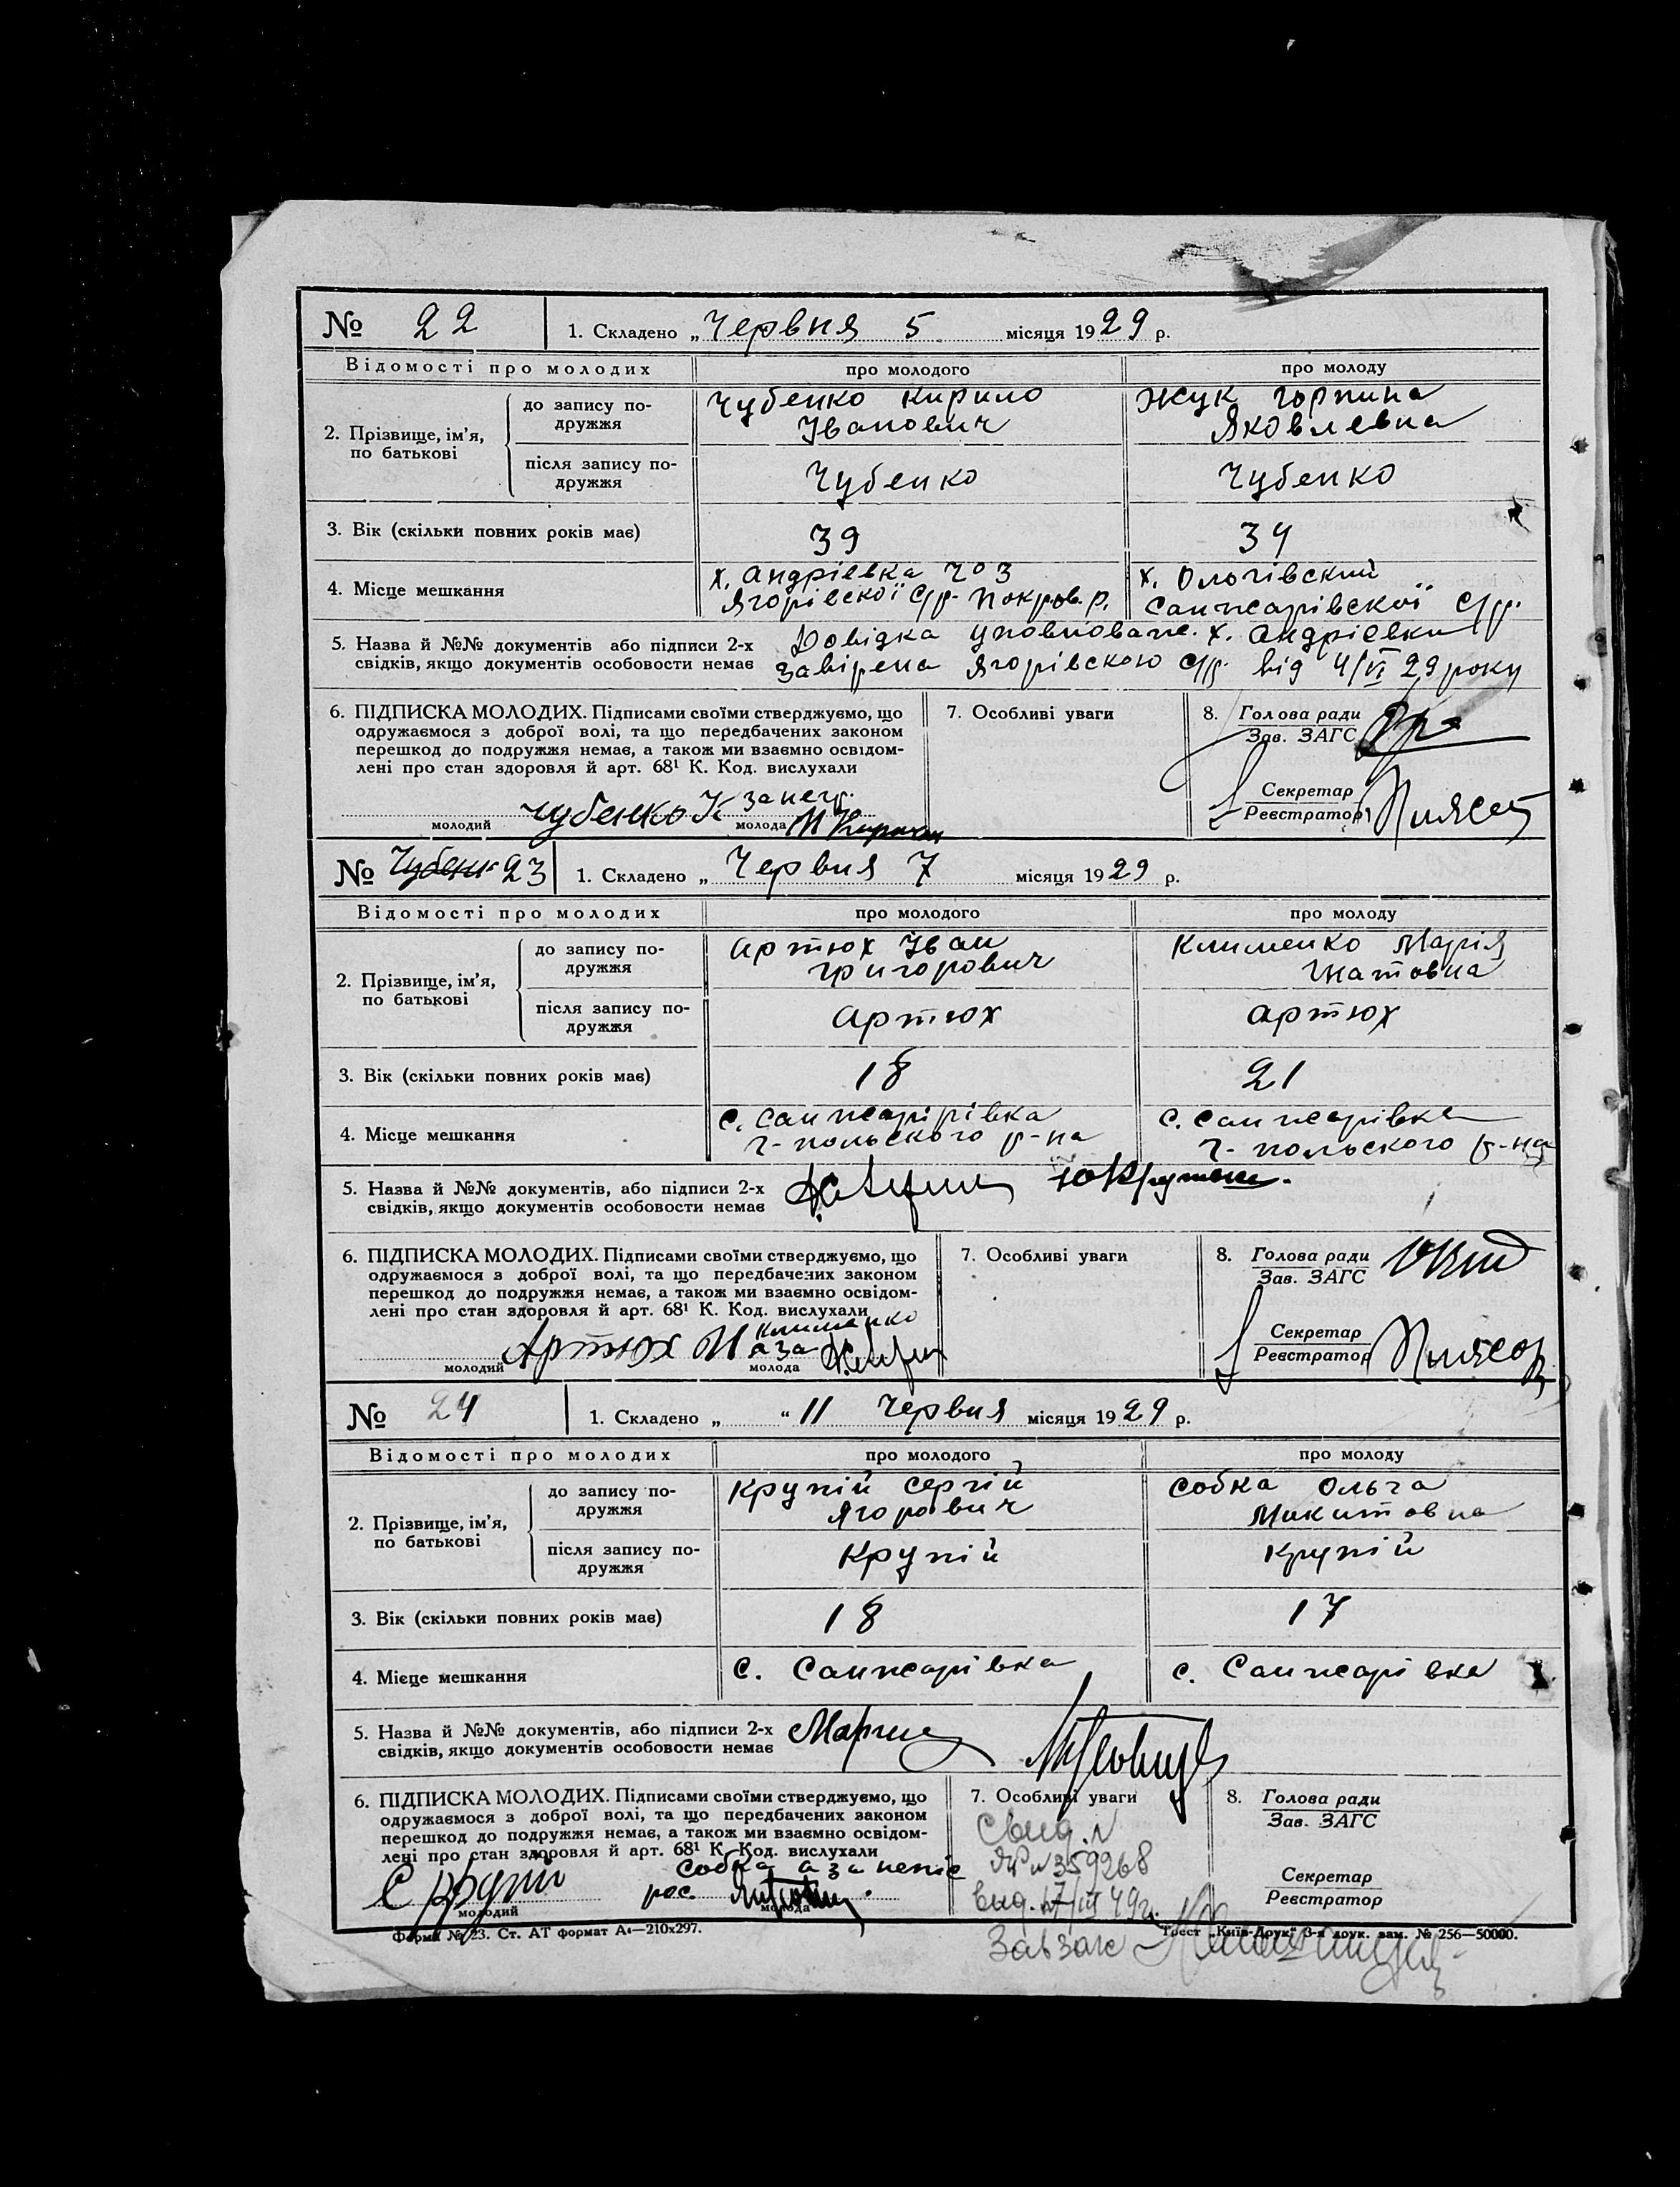 № 22 1. Складено „ Червня 5 місяця 1929 р.
Відомості про молодих про молодого про молоду
2. Прізвище, ім'я, по батькові
до запису подружжя Чубенко Кирило Жук Горпина
Іванович Яковлевна
після запису подружжя Чубенко Чубенко
3. Вік (скільки повних років має) 39 34
х. Андріевка х. Ольгівский
4. Місце мешкання Ягорівскої с/р. Покров. р. Санжарівскої с/р.
5. Назва й №№ документів або підписи 2-х Довідка уповноваже. х. Андріевки
свідків, якщо документів особовости немає завірена Ягорівскою с/р. від 4/VI 29 року
6. ПІДПИСКА МОЛОДИХ. Підписами своїми стверджуємо, що 7. Особливі уваги 8. Голова ради
одружаємося з доброї волі, та що передбачених законом Зав. ЗАГС
перешкод до подружжя немає, а також ми взаємно освідом-
лені про стан здоровля й арт. 68¹ К. Код. вислухали Секретар
Чубенко К Реєстратор
молодий молода
№ 23 1. Складено „ Червня 7 місяця 1929 р.
Відомості про молодих про молодого про молоду
2. Прізвище, ім'я, по батькові
до запису подружжя Артюх Іван Клименко Марія
Григорович Гнатовна
після запису подружжя Артюх Артюх
3. Вік (скільки повних років має) 18 21
с. Санжарірівка с. Санжарівка
4. Місце мешкання Ч-польского р-на Ч-польского р-на
5. Назва й №№ документів, або підписи 2-х
свідків, якщо документів особовости немає
6. ПІДПИСКА МОЛОДИХ. Підписами своїми стверджуємо, що 7. Особливі уваги 8. Голова ради
одружаємося з доброї волі, та що передбачених законом Зав. ЗАГС
перешкод до подружжя немає, а також ми взаємно освідом-
лені про стан здоровля й арт. 68¹ К. Код. вислухали Секретар
Клименко Реєстратор
Артюх И
молодий молода
№ 24 1. Складено „ “ 11 Червня місяця 1929 р.
Відомості про молодих про молодого про молоду
2. Прізвище, ім'я, по батькові
до запису подружжя Крупій Сергій Собка Ольга
Ягорович Микитовна
після запису подружжя Крупій Крупій
3. Вік (скільки повних років має) 18 17
4. Місце мешкання с. Санжарівка с. Санжарівка
5. Назва й №№ документів, або підписи 2-х
свідків, якщо документів особовости немає
6. ПІДПИСКА МОЛОДИХ. Підписами своїми стверджуємо, що 7. Особливі уваги 8. Голова ради
одружаємося з доброї волі, та що передбачених законом Зав. ЗАГС
перешкод до подружжя немає, а також ми взаємно освідом-
лені про стан здоровля й арт. 68¹ К. Код. вислухали 359268 Секретар
Собка Реєстратор
молодий молода
Форма № 23. Ст. АТ формат А₄—210х297. Трест „Київ-Друк“ 3-я друк. зам. № 256—50000.